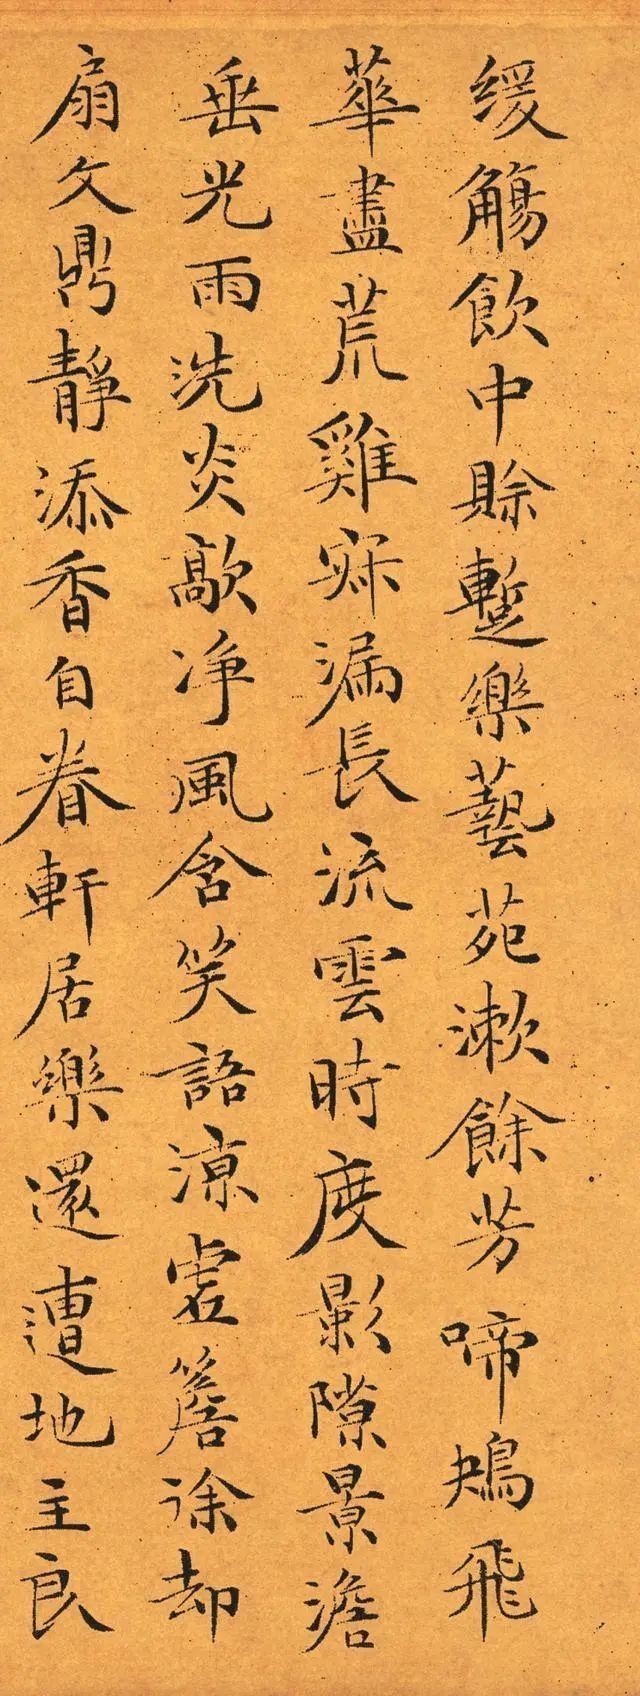 缓觴飲中賖蹔樂藝苑漱餘芳啼鴂飛
華盡荒雞寐漏長流雲時度影隙景澹
垂光雨洗炎歊净風含笑語涼虚簷徐却
扇文鼎靜添香自眷軒居樂還遭地主良